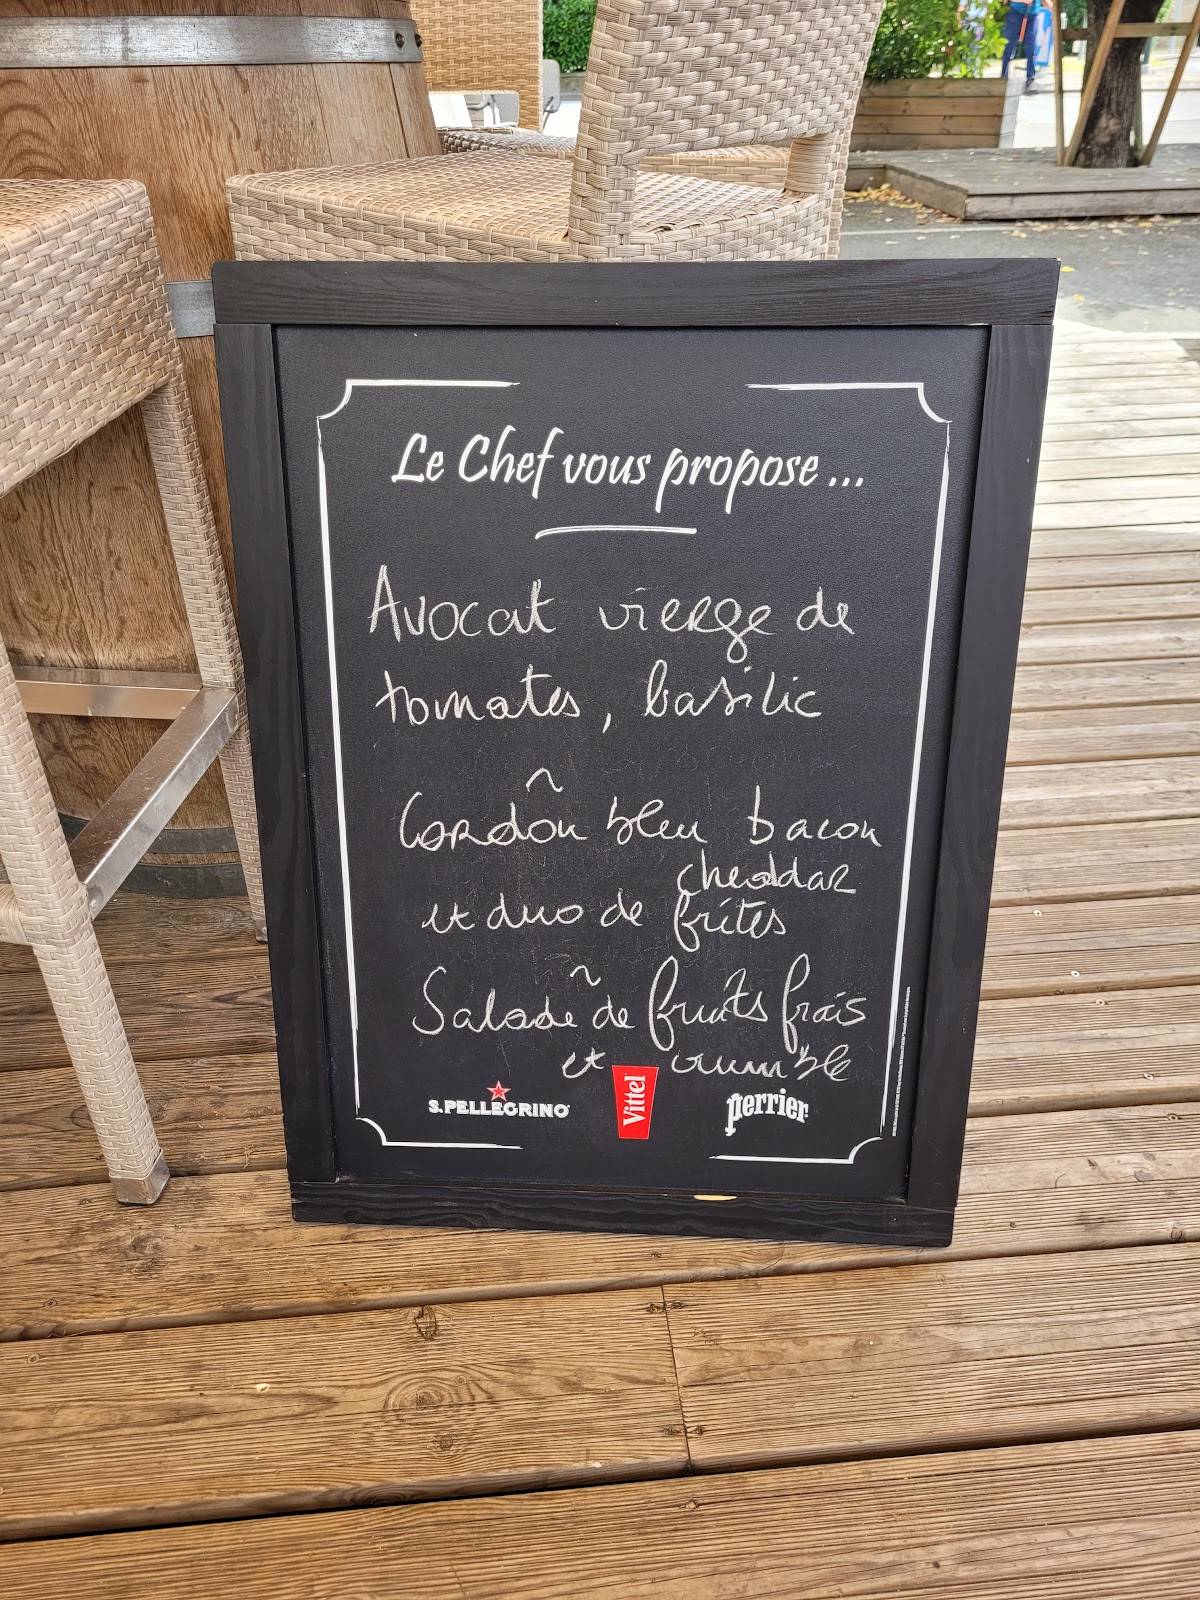 Le Chef vous propose ...
Avocat vierge de
tomates, basilic
~
Cordon bleu bacon
cheddar
et duo de frites
~
Salade de fruits frais
et crumble
S.PELLEGRINO
Vittel
perrier